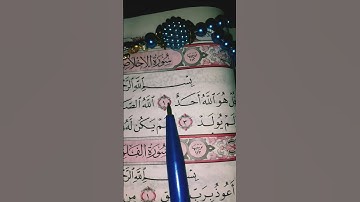 سُورَةُ الإِخْلَاصِ
بِسْمِ اللَّهِ الرَّ
قُلْ هُوَ اللَّهُ أَحَدٌ ١ اللَّهُ الصَّ
لَمْ يُولَدْ ٣ وَلَمْ يَكُن لَّهُ
سُورَةُ الفَلَق
بِسْمِ اللَّهِ الرَّ
أَعُوذُ بِرَبِّ ١ مِن